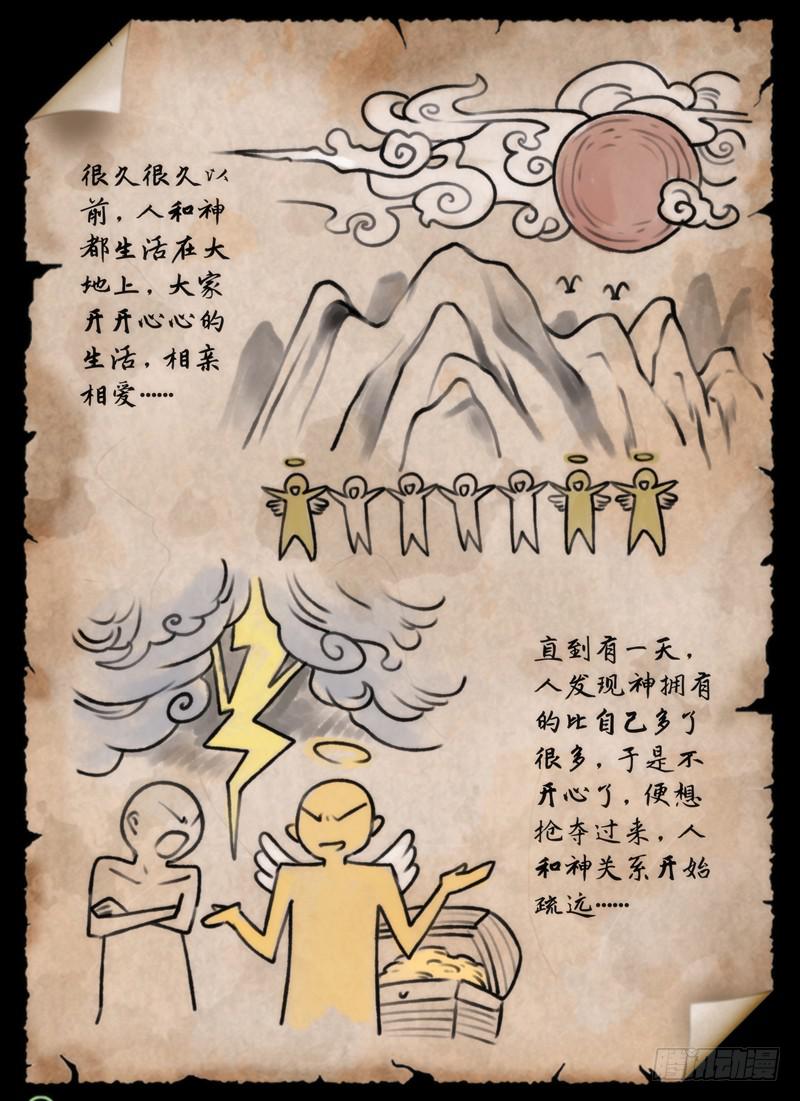 很久很久以
前，人和神
都生活在大
地上，大家
开开心心的
生活，相亲
相爱……
直到有一天，
人发现神拥有
的比自己多了
很多，于是不
开心了，便想
抢夺过来，人
和神关系开始
疏远……
腾讯动漫